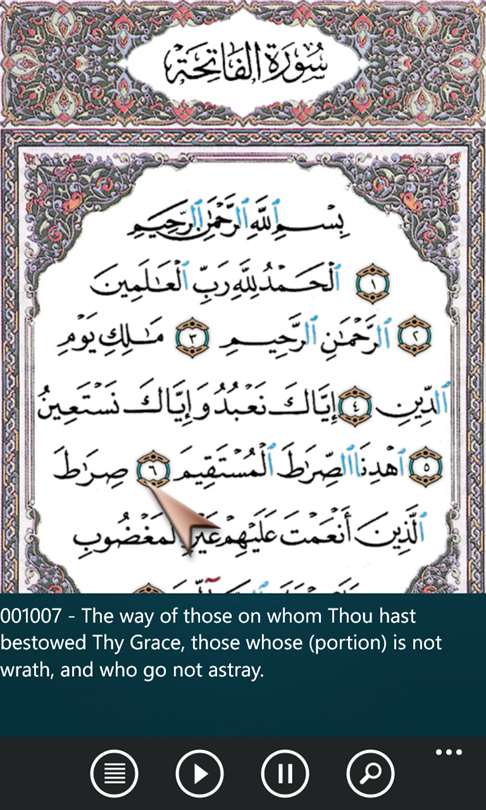 سُورَةُ الفَاتِحَة
بِسْمِ ٱللَّهِ ٱلرَّحْمَٰنِ ٱلرَّحِيمِ
١ ٱلْحَمْدُ لِلَّهِ رَبِّ ٱلْعَٰلَمِينَ
٢ ٱلرَّحْمَٰنِ ٱلرَّحِيمِ ٣ مَٰلِكِ يَوْمِ
ٱلدِّينِ ٤ إِيَّاكَ نَعْبُدُ وَإِيَّاكَ نَسْتَعِينُ
٥ ٱهْدِنَا ٱلصِّرَٰطَ ٱلْمُسْتَقِيمَ ٦ صِرَٰطَ
ٱلَّذِينَ أَنْعَمْتَ عَلَيْهِمْ غَيْرِ ٱلْمَغْضُوبِ
001007 - The way of those on whom Thou hast
bestowed Thy Grace, those whose (portion) is not
wrath, and who go not astray.